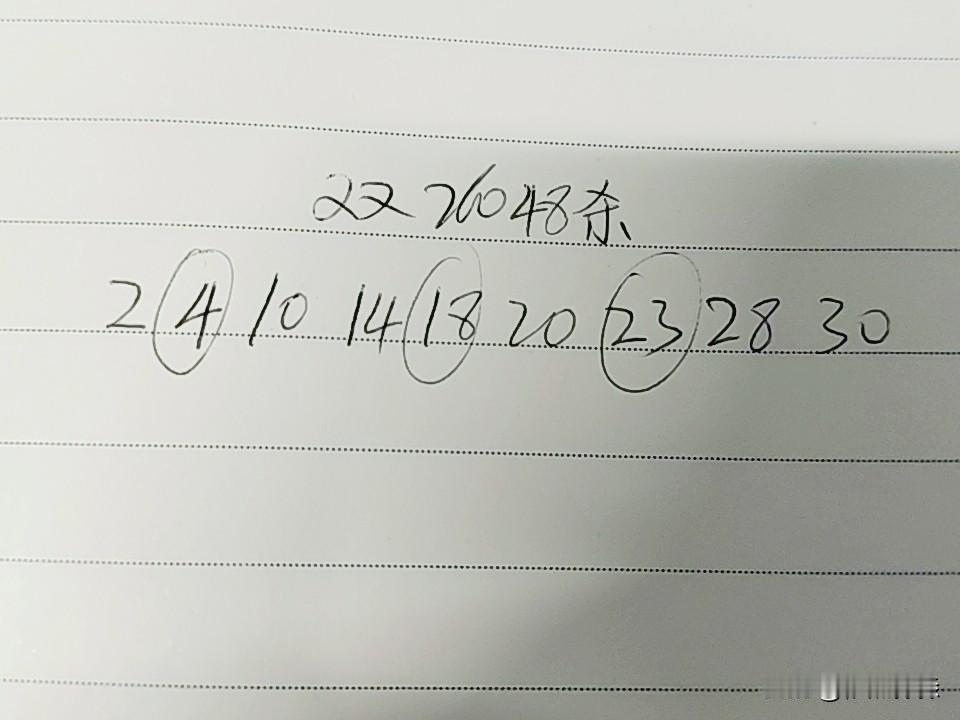 22 26048杀
2 4 10 14 18 20 23 28 30